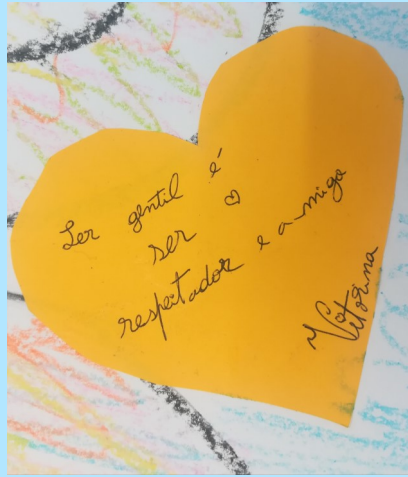 Ser gentil é
ser ♡
respeitador e amiga
Vitorina